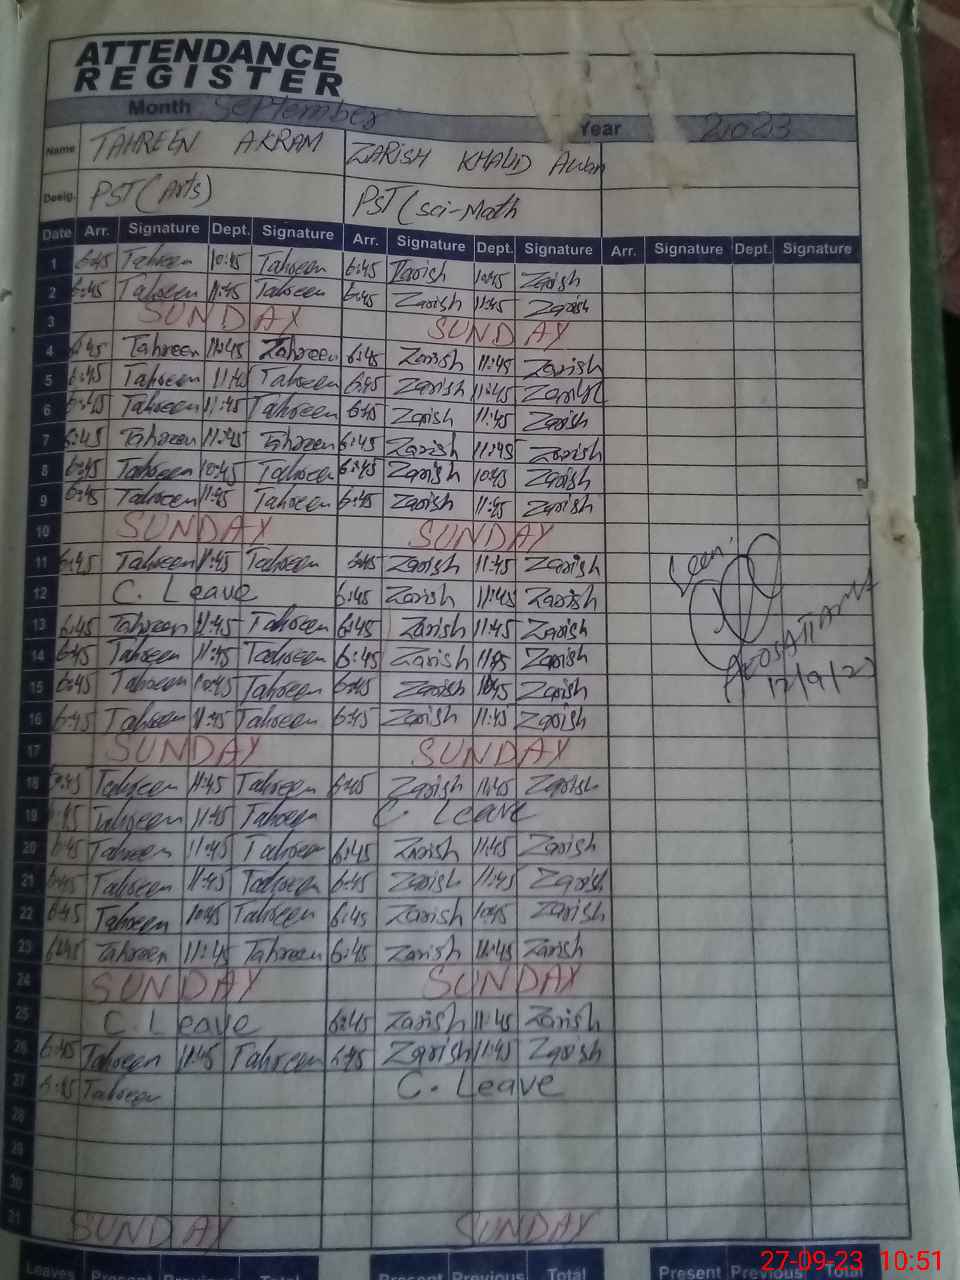 ATTENDANCE
REGISTER
Month September Year 2023
Name TAHREEN AKRAM ZARISH KHALID Awan
Desig. PST (Arts) PST (sci-Math
Date Arr. Signature Dept. Signature Arr. Signature Dept. Signature Arr. Signature Dept. Signature
1 6:45 Tahreen 10:45 Tahreen 6:45 Zarish 10:45 Zarish
2 6:45 Tahreen 11:45 Tahreen 6:45 Zarish 11:45 Zarish
3 SUNDAY SUNDAY
4 6:45 Tahreen 11:45 Tahreen 6:45 Zarish 11:45 Zarish
5 6:45 Tahreen 11:45 Tahreen 6:45 Zarish 11:45 Zarish
6 6:45 Tahreen 11:45 Tahreen 6:45 Zarish 11:45 Zarish
7 6:45 Tahreen 11:45 Tahreen 6:45 Zarish 11:45 Zarish
8 6:45 Tahreen 10:45 Tahreen 6:45 Zarish 10:45 Zarish
9 6:45 Tahreen 11:45 Tahreen 6:45 Zarish 11:45 Zarish
10 SUNDAY SUNDAY
11 6:45 Tahreen 11:45 Tahreen 6:45 Zarish 11:45 Zarish
Seen
12 C. Leave 6:45 Zarish 11:45 Zarish
13 6:45 Tahreen 11:45 Tahreen 6:45 Zarish 11:45 Zarish
14 6:45 Tahreen 11:45 Tahreen 6:45 Zarish 11:45 Zarish
15 6:45 Tahreen 10:45 Tahreen 6:45 Zarish 10:45 Zarish
12/9/23
16 6:45 Tahreen 11:45 Tahreen 6:45 Zarish 11:45 Zarish
17 SUNDAY SUNDAY
18 6:45 Tahreen 11:45 Tahreen 6:45 Zarish 11:45 Zarish
19 6:45 Tahreen 11:45 Tahreen C. Leave
20 6:45 Tahreen 11:45 Tahreen 6:45 Zarish 11:45 Zarish
21 6:45 Tahreen 11:45 Tahreen 6:45 Zarish 11:45 Zarish
22 6:45 Tahreen 10:45 Tahreen 6:45 Zarish 10:45 Zarish
23 6:45 Tahreen 11:45 Tahreen 6:45 Zarish 11:45 Zarish
24 SUNDAY SUNDAY
25 C. Leave 6:45 Zarish 11:45 Zarish
26 6:45 Tahreen 11:45 Tahreen 6:45 Zarish 11:45 Zarish
27 6:45 Tahreen C. Leave
28
29
30
31 SUNDAY SUNDAY
Leaves Present Previous Total Present Previous Total Present Previous Total
27-09-23 10:51